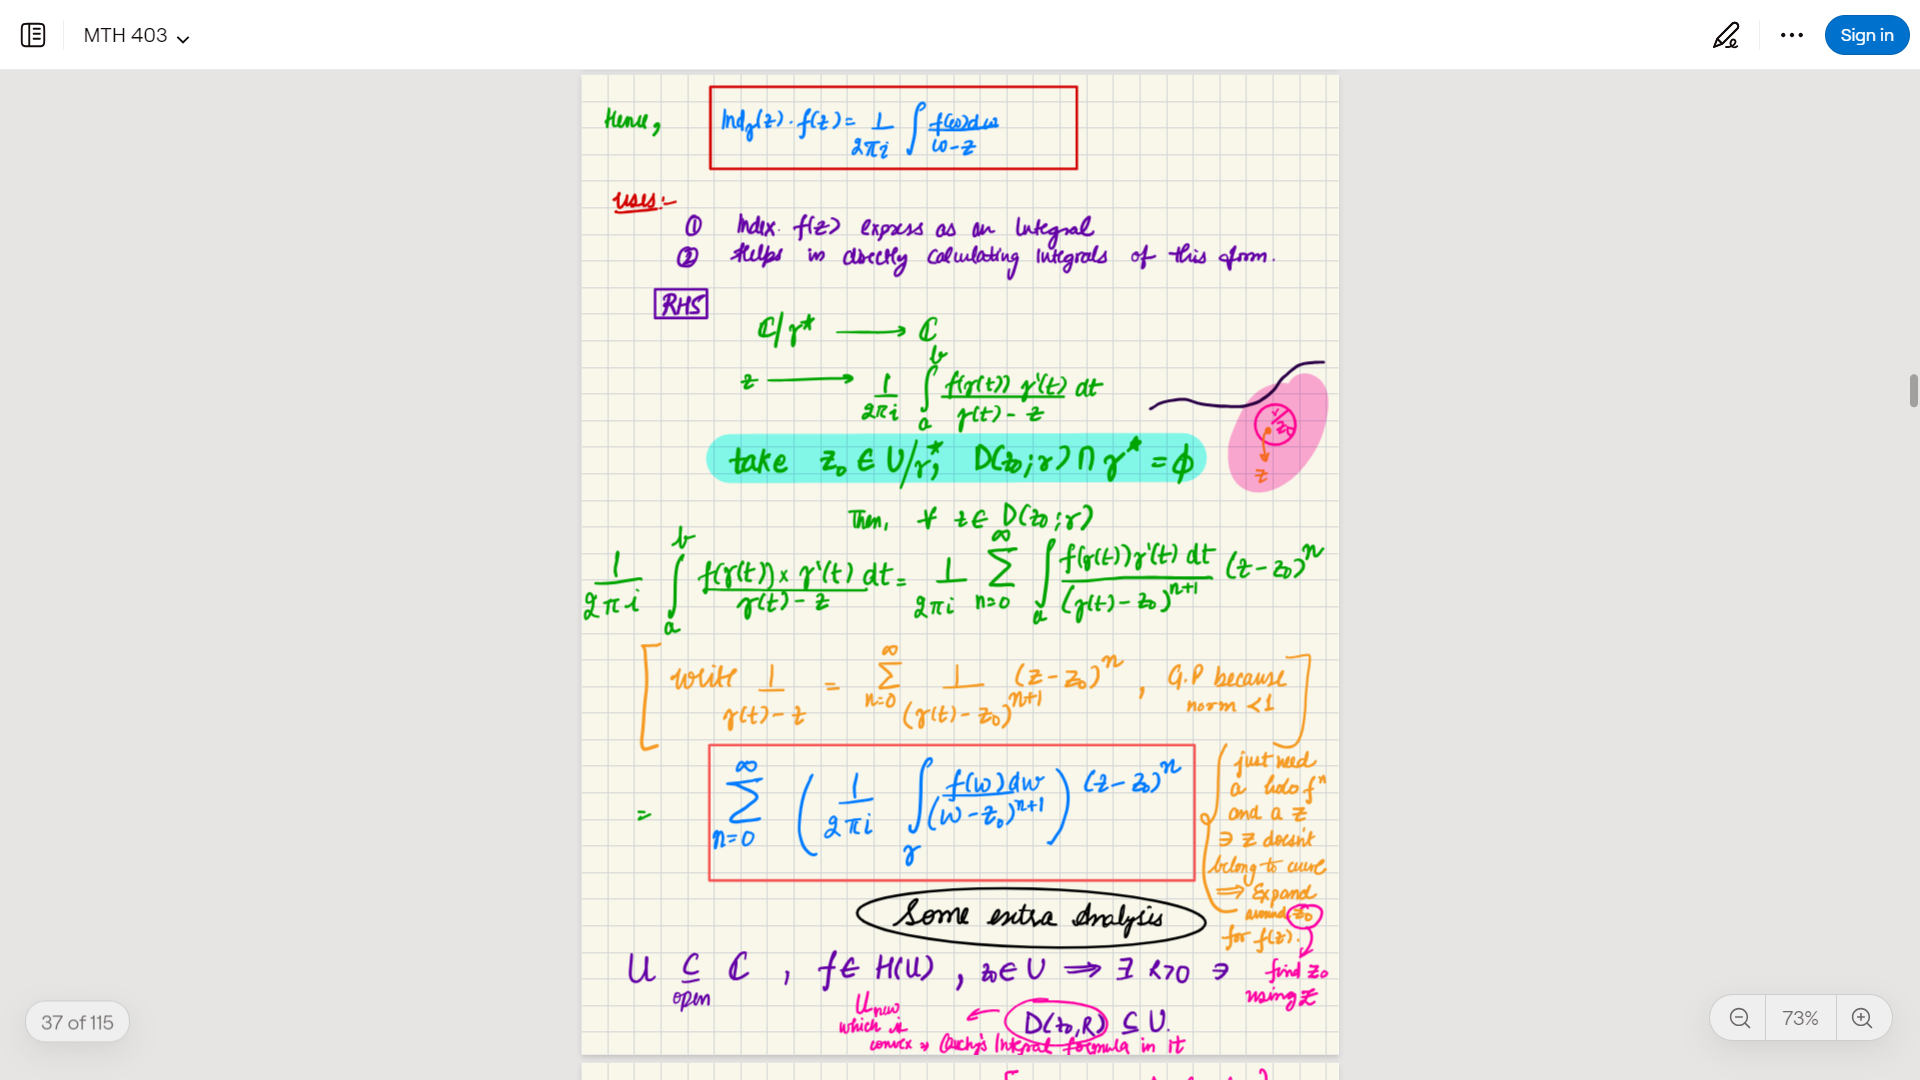 MTH 403
Sign in
Hence, Ind_γ(z) · f(z) = 1/2πi ∫ f(ω)dω/ω-z
uses:-
① Index. f(z) express as an Integral
② Helps in directly calculating integrals of this form.
RHS
ℂ/γ* → ℂ
z → 1/2πi ∫_a^b f(γ(t)) γ'(t)/γ(t) - z dt
z
take z₀ ∈ U/γ*; D(z₀;r) ∩ γ* = ϕ
Then, ∀ z ∈ D(z₀;r)
1/2πi ∫_a^b f(γ(t)) × γ'(t) dt/γ(t) - z = 1/2πi ∑_{n=0}^∞ ∫_a^b f(γ(t))γ'(t) dt/(γ(t) - z₀)^{n+1} (z - z₀)^n
[write 1/γ(t) - z = ∑_{n=0}^∞ 1/(γ(t) - z₀)^{n+1} (z - z₀)^n , G.P because norm < 1]
= ∑_{n=0}^∞ (1/2πi ∫_γ f(w)dw/(w - z₀)^{n+1}) (z - z₀)^n
just need
a holo fⁿ
and a z
∋ z doesn't
belong to curve
⟹ Expand
around z₀
for f(z).
find z₀
using z
Some extra Analysis
U ⊆ ℂ , f ∈ H(U) , z₀ ∈ U ⟹ ∃ R>0 ∋
open
U new
which is
convex ⇒ Cauchy's Integral formula in it
← D(z₀,R) ⊆ U.
37 of 115
73%